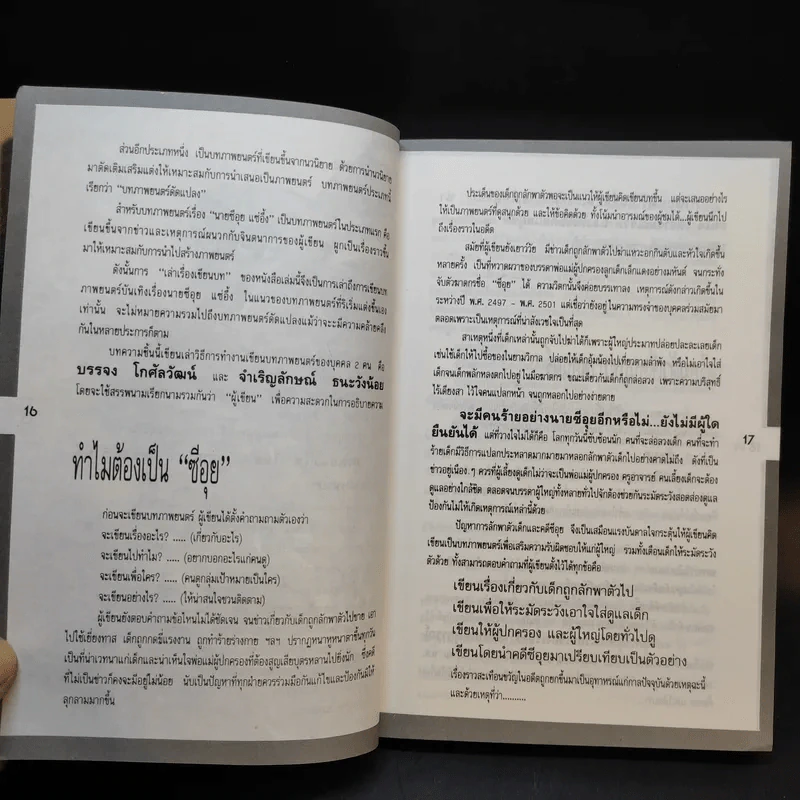 ส่วนอีกประเภทหนึ่ง เป็นบทภาพยนตร์ที่เขียนขึ้นจากนวนิยาย ด้วยการนำนวนิยาย
มาดัดเติมเสริมแต่งให้เหมาะสมกับการนำเสนอเป็นภาพยนตร์ บทภาพยนตร์ประเภทนี้
เรียกว่า "บทภาพยนตร์ดัดแปลง"
สำหรับบทภาพยนตร์เรื่อง "นายซีอุย แซ่อึ้ง" เป็นบทภาพยนตร์ในประเภทแรก คือ
เขียนขึ้นจากข่าวและเหตุการณ์ผนวกกับจินตนาการของผู้เขียน ผูกเป็นเรื่องราวขึ้น
มาให้เหมาะสมกับการนำไปสร้างภาพยนตร์
ดังนั้นการ "เล่าเรื่องเขียนบท" ของหนังสือเล่มนี้จึงเป็นการเล่าถึงการเขียนบท
ภาพยนตร์บันเทิงเรื่องนายซีอุย แซ่อึ้ง ในแนวของบทภาพยนตร์ที่ริเริ่มแต่งขึ้นเอง
เท่านั้น จะไม่หมายความรวมไปถึงบทภาพยนตร์ดัดแปลงแม้ว่าจะมีความคล้ายคลึง
กันในหลายประการก็ตาม
บทความชิ้นนี้เขียนเล่าวิธีการทำงานเขียนบทภาพยนตร์ของบุคคล 2 คน คือ
บรรจง โกศัลวัฒน์ และ จำเริญลักษณ์ ธนะวังน้อย
โดยจะใช้สรรพนามเรียกนามรวมกันว่า "ผู้เขียน" เพื่อความสะดวกในการอธิบายความ
16
ทำไมต้องเป็น "ซีอุย"
ก่อนจะเขียนบทภาพยนตร์ ผู้เขียนได้ตั้งคำถามถามตัวเองว่า
จะเขียนเรื่องอะไร? ..... (เกี่ยวกับอะไร)
จะเขียนไปทำไม? ..... (อยากบอกอะไรแก่คนดู)
จะเขียนเพื่อใคร? ..... (คนดูกลุ่มเป้าหมายเป็นใคร)
จะเขียนอย่างไร? ..... (ให้น่าสนใจชวนติดตาม)
ผู้เขียนยังตอบคำถามข้อไหนไม่ได้ชัดเจน จนข่าวเกี่ยวกับเด็กถูกลักพาตัวไปขาย เอา
ไปใช้เยี่ยงทาส เด็กถูกกดขี่แรงงาน ถูกทำร้ายร่างกาย ฯลฯ ปรากฏหนาหูหนาตาขึ้นทุกวัน
เป็นที่น่าเวทนาแก่เด็กและน่าเห็นใจพ่อแม่ผู้ปกครองที่ต้องสูญเสียบุตรหลานไปยิ่งนัก ซึ่งคดี
ที่ไม่เป็นข่าวก็คงจะมีอยู่ไม่น้อย นับเป็นปัญหาที่ทุกฝ่ายควรร่วมมือกันแก้ไขและป้องกันมิให้
ลุกลามมากขึ้น
ประเด็นของเด็กถูกลักพาตัวพอจะเป็นแนวให้ผู้เขียนคิดเขียนบทขึ้น แต่จะเสนออย่างไร
ให้เป็นภาพยนตร์ที่ดูสนุกด้วย และให้ข้อคิดด้วย ทั้งโน้มนำอารมณ์ของผู้ชมได้...ผู้เขียนนึกไป
ถึงเรื่องราวในอดีต
สมัยที่ผู้เขียนยังเยาว์วัย มีข่าวเด็กถูกลักพาตัวไปฆ่าแหวะอกกินตับและหัวใจเกิดขึ้น
หลายครั้ง เป็นที่หวาดผวาของบรรดาพ่อแม่ผู้ปกครองลูกเด็กเล็กแดงอย่างมหันต์ จนกระทั่ง
จับตัวฆาตกรชื่อ "ซีอุย" ได้ ความวิตกนั้นจึงค่อยบรรเทาลง เหตุการณ์ดังกล่าวเกิดขึ้นใน
ระหว่างปี พ.ศ. 2497 – พ.ศ. 2501 แต่เชื่อว่ายังอยู่ ในความทรงจำของบุคคลร่วมสมัยมา
ตลอดเพราะเป็นเหตุการณ์ที่น่าสังเวชใจเป็นที่สุด
สาเหตุหนึ่งที่เด็กเหล่านั้นถูกจับไปฆ่าได้ก็เพราะผู้ใหญ่ประมาทปล่อยปละละเลยเด็ก
เช่นใช้เด็กให้ไปซื้อของในยามวิกาล ปล่อยให้เด็กอุ้มน้องไปเที่ยวตามลำพัง หรือไม่เอาใจใส่
เด็กจนเด็กพลัดหลงตกไปอยู่ ในมือฆาตกร ขณะเดียวกันเด็กก็ถูกล่อลวง เพราะความบริสุทธิ์
ไร้เดียงสา ไว้ใจคนแปลกหน้า จนถูกหลอกไปอย่างง่ายดาย
จะมีคนร้ายอย่างนายซีอุยอีกหรือไม่...ยังไม่มีผู้ใด
ยืนยันได้ แต่ที่วางใจไม่ได้ก็คือ โลกทุกวันนี้ซับซ้อนนัก คนที่จะล่อลวงเด็ก คนที่จะทำ
ร้ายเด็กมีวิธีการแปลกประหลาดมากมายมาหลอกลักพาตัวเด็กไปอย่างคาดไม่ถึง ดังที่เป็น
ข่าวอยู่เนือง ๆ ควรที่ผู้เลี้ยงดูเด็กไม่ว่าจะเป็นพ่อแม่ผู้ปกครอง ครูอาจารย์ คนเลี้ยงเด็กจะต้อง
ดูแลอย่างใกล้ชิด ตลอดจนบรรดาผู้ใหญ่ทั้งหลายทั่วไปจักต้องช่วยกันระมัดระวังสอดส่องดูแล
ป้องกันไม่ให้เกิดเหตุการณ์เหล่านี้ด้วย
ปัญหาการลักพาตัวเด็กและคดีซีอุย จึงเป็นเสมือนแรงบันดาลใจกระตุ้นให้ผู้เขียนคิด
เขียนเป็นบทภาพยนตร์เพื่อเสริมความรับผิดชอบให้แก่ผู้ใหญ่ รวมทั้งเตือนเด็กให้ระมัดระวัง
ตัวด้วย ทั้งสามารถตอบคำถามที่ผู้เขียนตั้งไว้ได้ทุกข้อคือ
เขียนเรื่องเกี่ยวกับเด็กถูกลักพาตัวไป
เขียนเพื่อให้ระมัดระวังเอาใจใส่ดูแลเด็ก
เขียนให้ผู้ปกครอง และผู้ใหญ่โดยทั่วไปดู
เขียนโดยนำคดีซีอุยมาเปรียบเทียบเป็นตัวอย่าง
เรื่องราวสะเทือนขวัญในอดีตถูกยกขึ้นมาเป็นอุทาหรณ์แก่กาลปัจจุบันด้วยเหตุฉะนี้
และด้วยเหตุที่ว่า..........
17